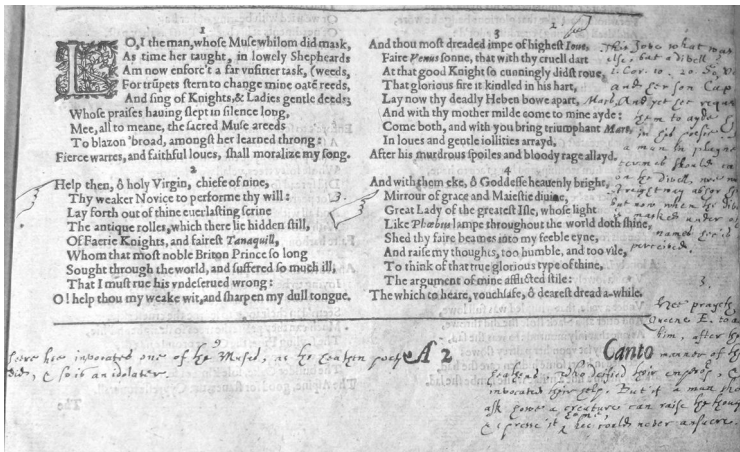 1
LO, I the man, whose Muse whilom did mask,
As time her taught, in lowly Shepheards
Am now enforc't a far vnfitter task, (weeds,
For trũpets stern to change mine oatẽ reeds,
And sing of Knights, & Ladies gentle deeds;
Whose praises hauing slept in silence long,
Mee, all to meane, the sacred Muse areeds
To blazon 'broad, amongst her learned throng:
Fierce warres, and faithful loues, shall moralize my song.
2
Help then, ô holy Virgin, chiefe of nine,
Thy weaker Novice to performe thy will:
Lay forth out of thine euerlasting scrine
The antique rolles, which there lie hidden still,
Of Faerie Knights, and fairest Tanaquill,
Whom that most noble Briton Prince so long
Sought through the world, and suffered so much ill,
That I must rue his vndeserued wrong:
O! help thou my weake wit, and sharpen my dull tongue.
3
And thou most dreaded impe of highest Ioue,
Faire Venus sonne, that with thy cruell dart
At that good Knight so cunningly didst roue,
That glorious fire it kindled in his hart,
Lay now thy deadly Heben bowe apart,
And with thy mother milde come to mine ayde:
Come both, and with you bring triumphant Mart,
In loues and gentle iollities arrayd,
After his murdrous spoiles and bloody rage allayd.
4
And with them eke, ô Goddesse heauenly bright,
Mirrour of grace and Maiestie diuine,
Great Lady of the greatest Isle, whose light
Like Phœbus lampe throughout the world doth shine,
Shed thy faire beames into my feeble eyne,
And raise my thoughts, too humble, and too vile,
To think of that true glorious type of thine,
The argument of mine afflicted stile:
The which to heare, vouchsafe, ô dearest dread a-while.
A 2
Canto
2
This Jove what was
else, but a divell
1. Cor. 10. 20.
3.
3.
heere hee invocates one of the Muses, as the heathen poets
did, & so is an idolater.
hee prayeth
Queene E. to a
him, after the
manner of th
ask howe a creature can raise his thoug
hee could never answere.